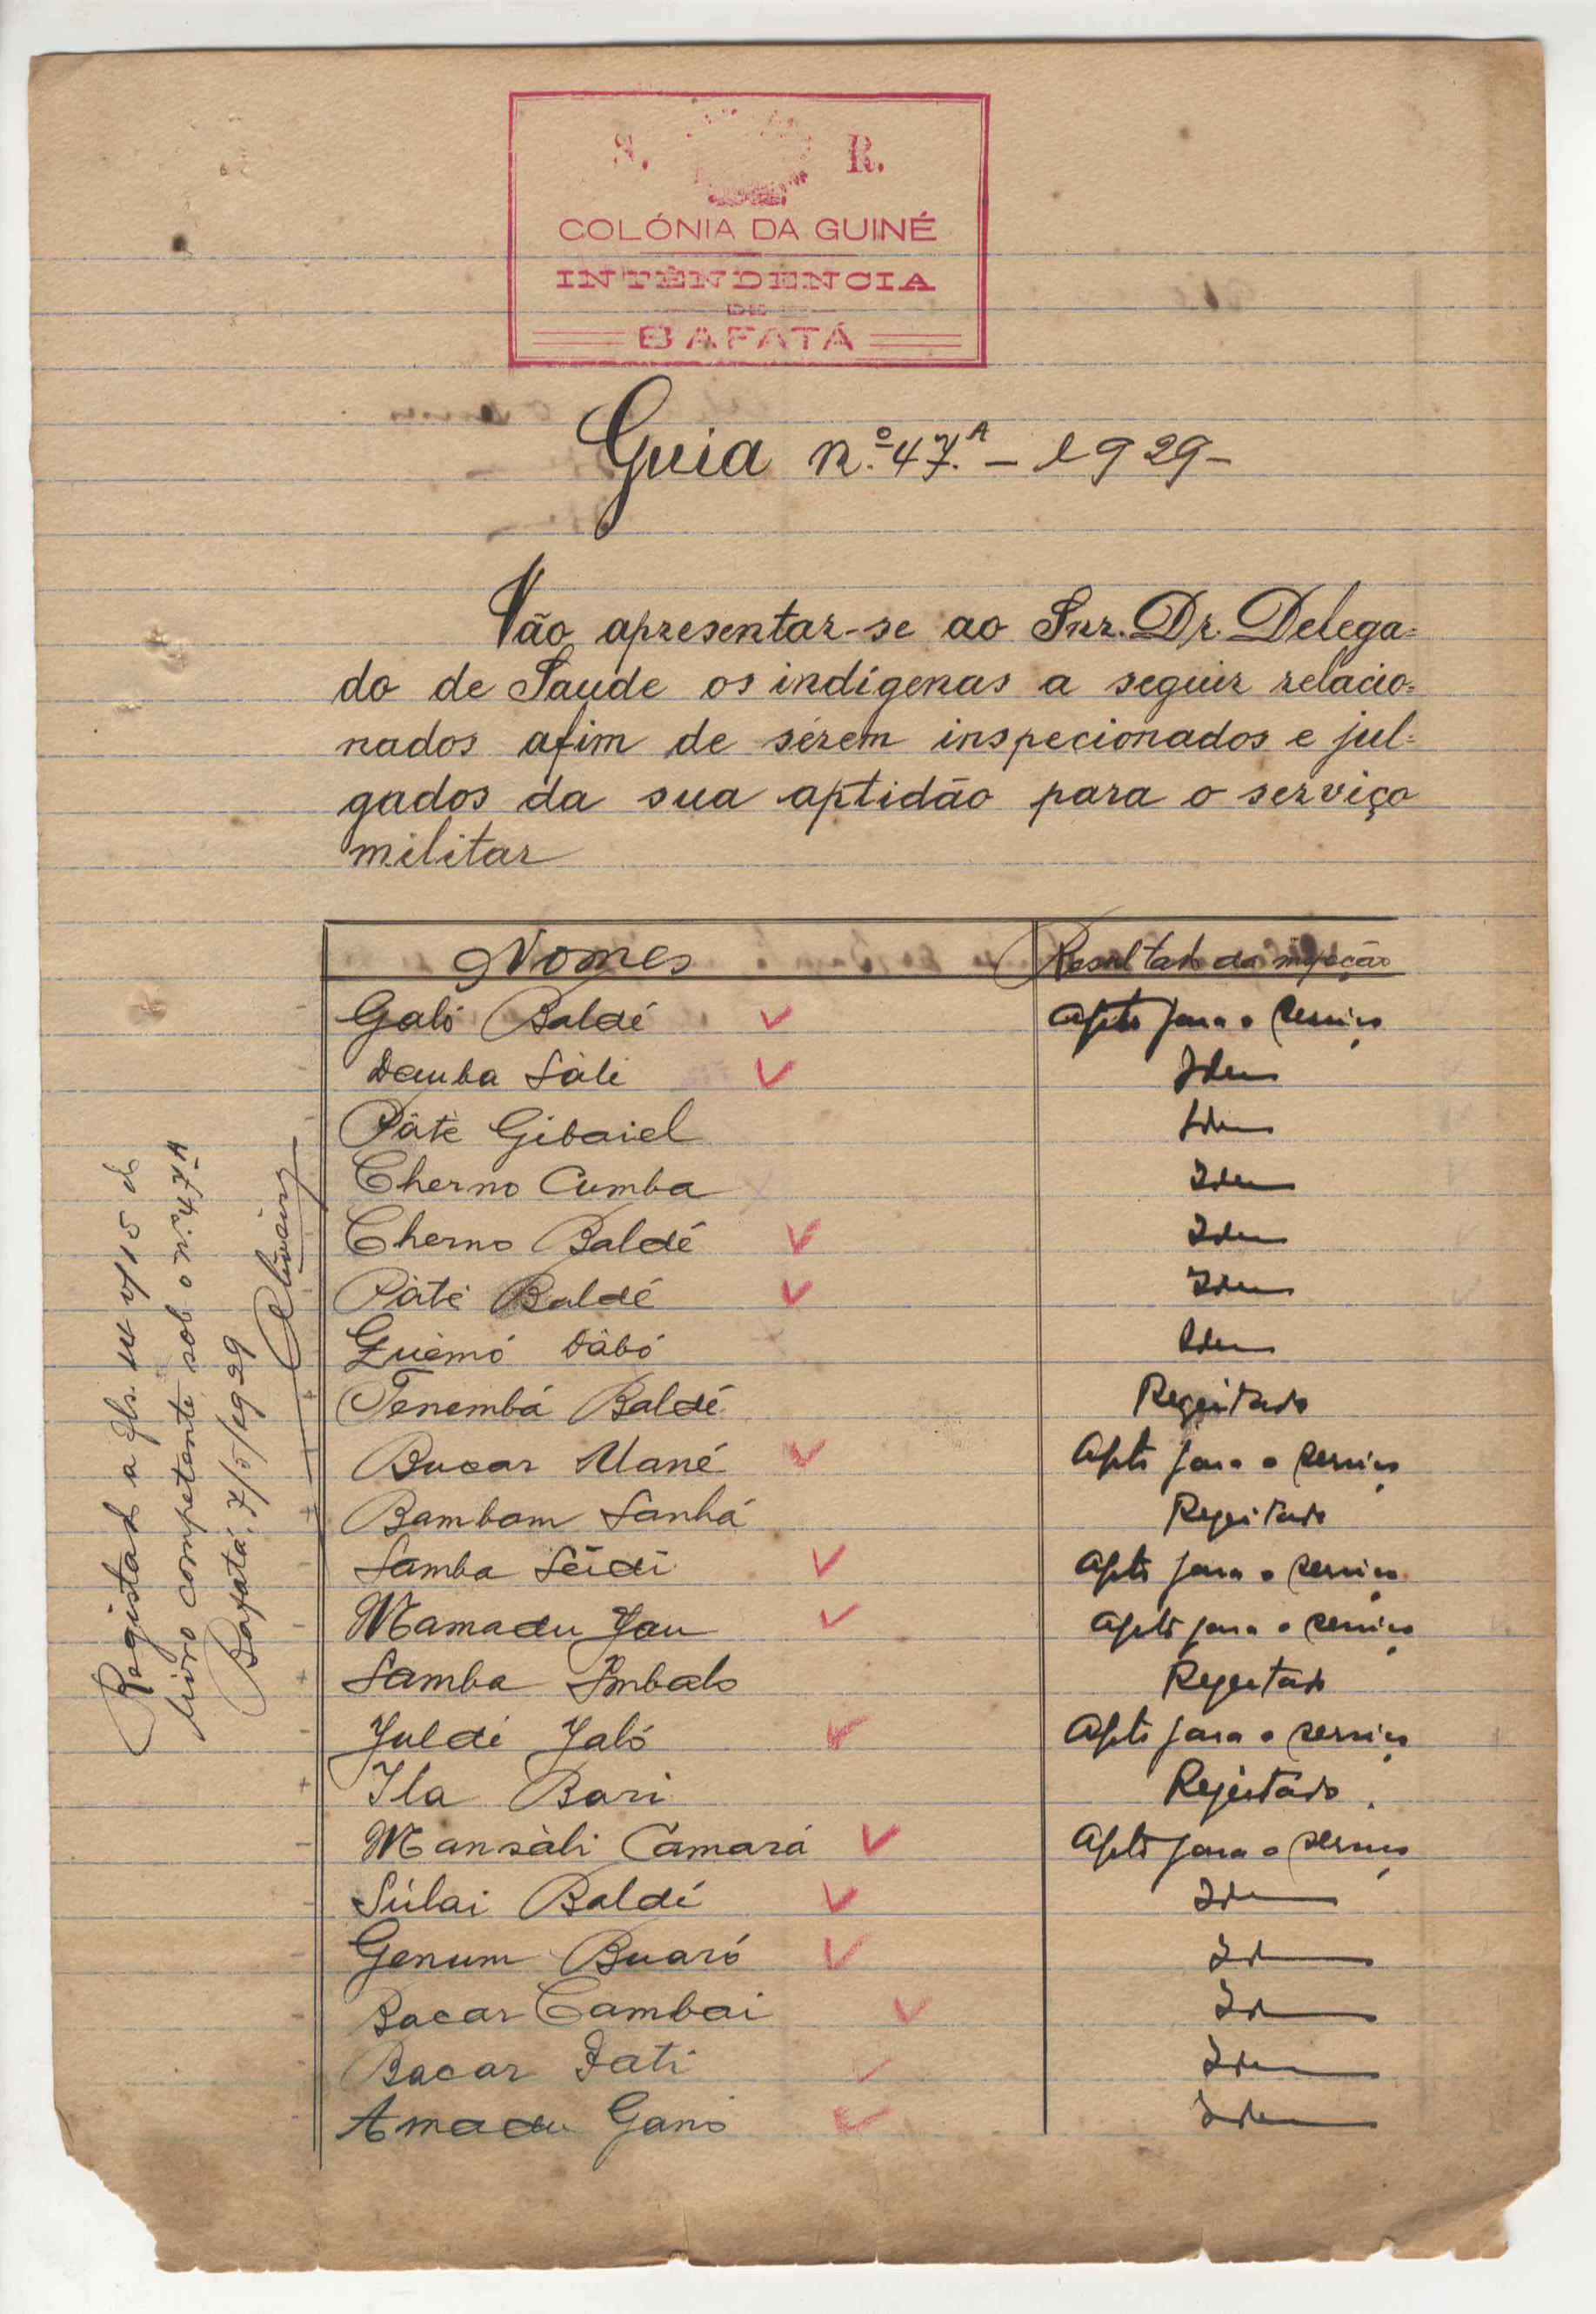 S. R.
COLÓNIA DA GUINÉ
INTENDENCIA
DE
BAFATÁ
Guia n.º 47.A - 1929 -
Vão apresentar-se ao Snr. Dr. Delega=
do de Saude os indígenas a seguir relacio=
nados afim de sérem inspecionados e jul=
gados da sua aptidão para o serviço
militar
Nomes Resultado da inspeção
Galó Baldé Apto para o serviço
Demba Sáli Idem
Páte Gibaiel Idem
Cherno Cumba Idem
Cherno Baldé Idem
Páté Baldé Idem
Guémó Dábó Idem
Tenembá Baldé Regeitado
Bucar Mané Apto para o serviço
Bambam Sanhá Regeitado
Samba Seidi Apto para o serviço
Mamadu Jau Apto para o serviço
Samba Embalo Rejeitado
Juldé Jaló Apto para o serviço
Ila Bari Rejeitado
Mansáli Camará Apto para o serviço
Súlai Baldé Idem
Genum Buaró Idem
Bacar Cambai Idem
Bacar Fati Idem
Amadu Ganó Idem
Registado a fls. 14 v/15 do
livro competente sob o n.º 47A
Bafatá, 7/5/1929